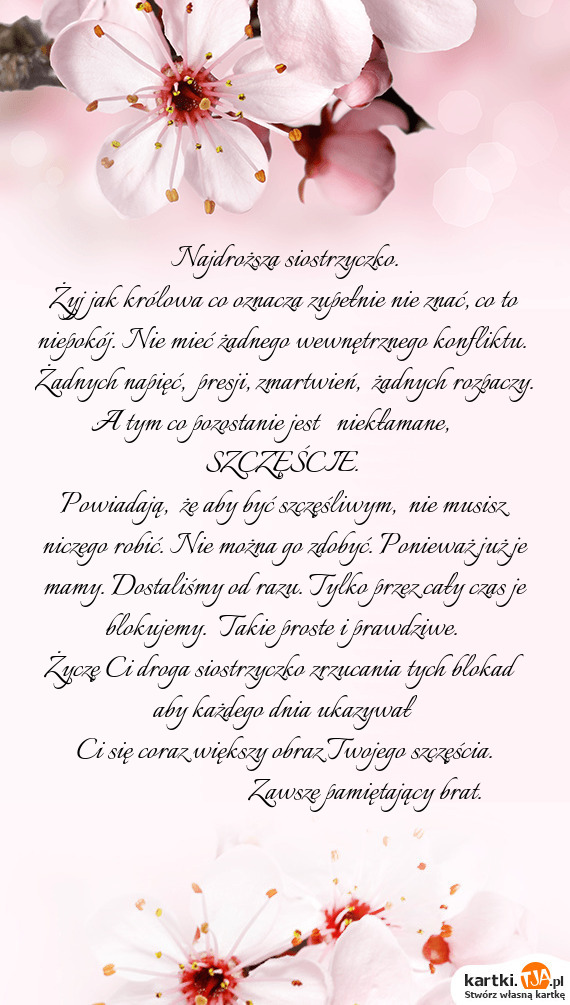 Najdroższa siostrzyczko.
Żyj jak królowa co oznacza zupełnie nie znać, co to
niepokój. Nie mieć żadnego wewnętrznego konfliktu.
Żadnych napięć, presji, zmartwień, żadnych rozpaczy.
A tym co pozostanie jest niekłamane,
SZCZĘŚCIE.
Powiadają, że aby być szczęśliwym, nie musisz
niczego robić. Nie można go zdobyć. Ponieważ już je
mamy. Dostaliśmy od razu. Tylko przez cały czas je
blokujemy. Takie proste i prawdziwe.
Życzę Ci droga siostrzyczko zrzucania tych blokad
aby każdego dnia ukazywał
Ci się coraz większy obraz Twojego szczęścia.
Zawsze pamiętający brat.
kartki.TJA.pl
Stwórz własną kartkę